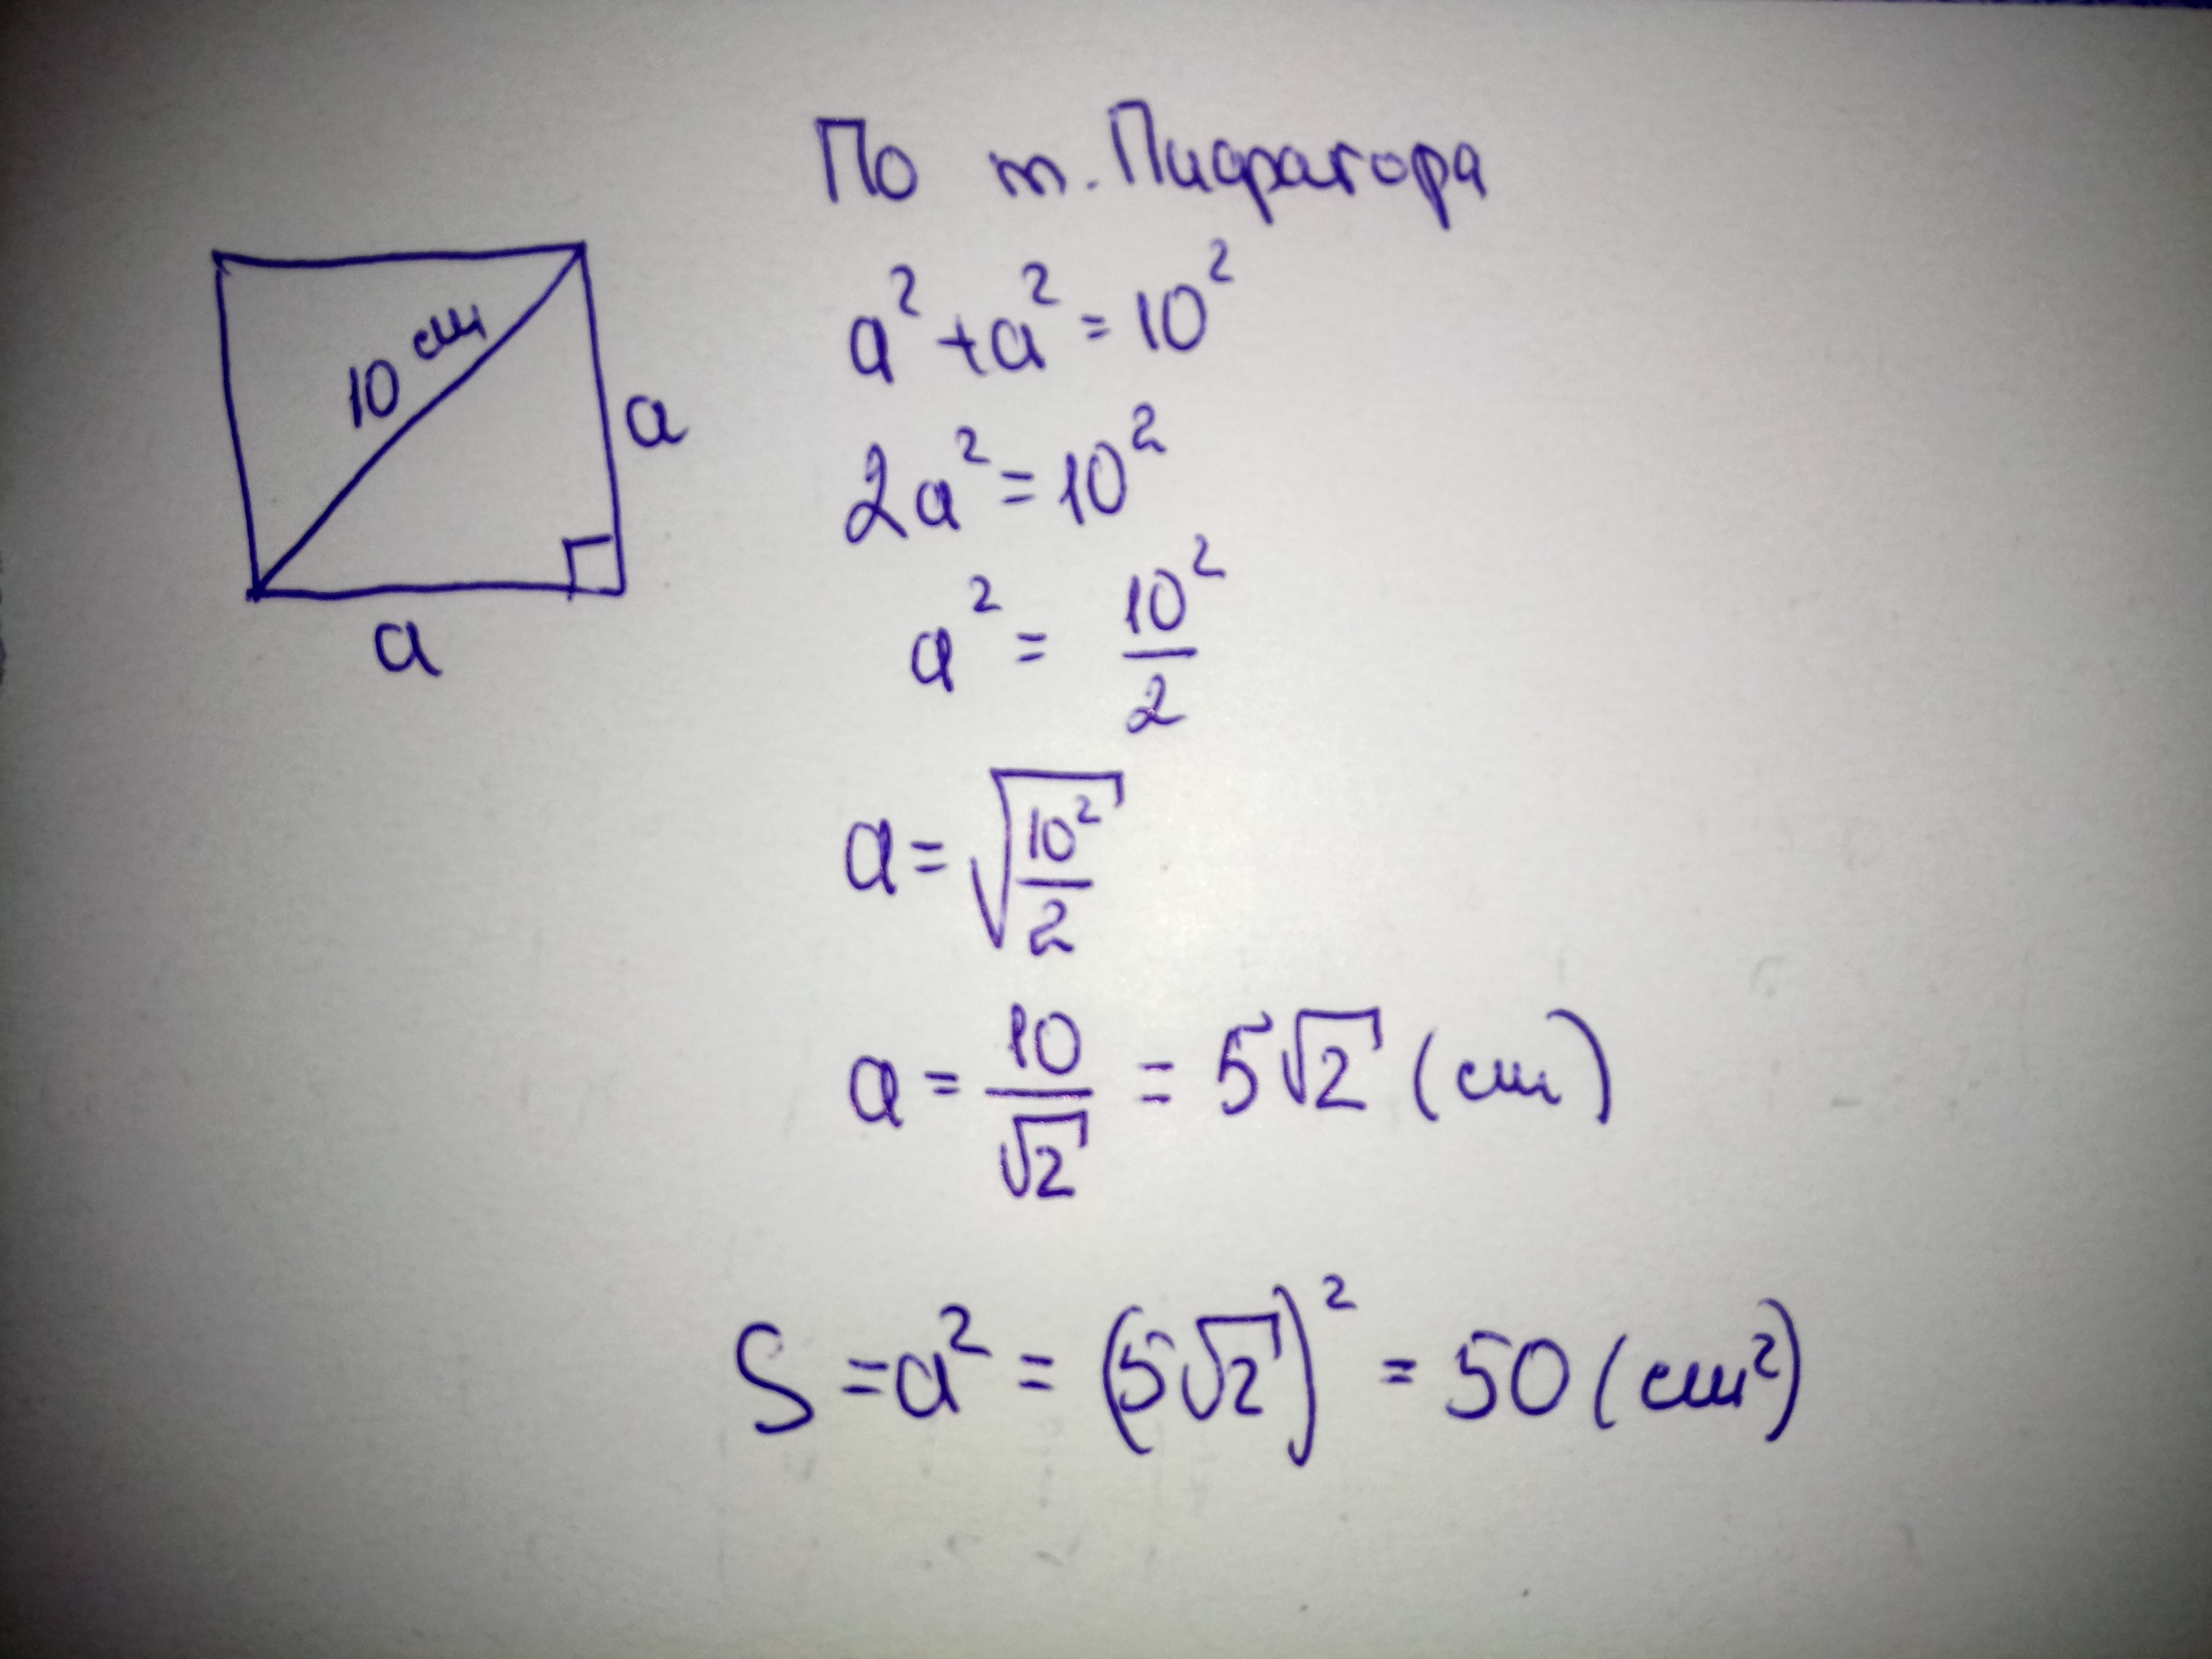 По т. Пифагора
10 см
a
a
a² + a² = 10²
2a² = 10²
a² = 10²/2
a = √(10²/2)
a = 10/√2 = 5√2 (см)
S = a² = (5√2)² = 50 (см²)